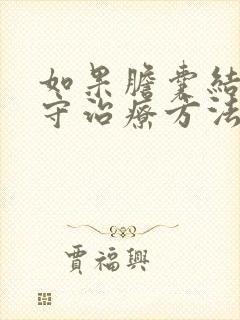 如果膽囊結
守治療方法
賈福興